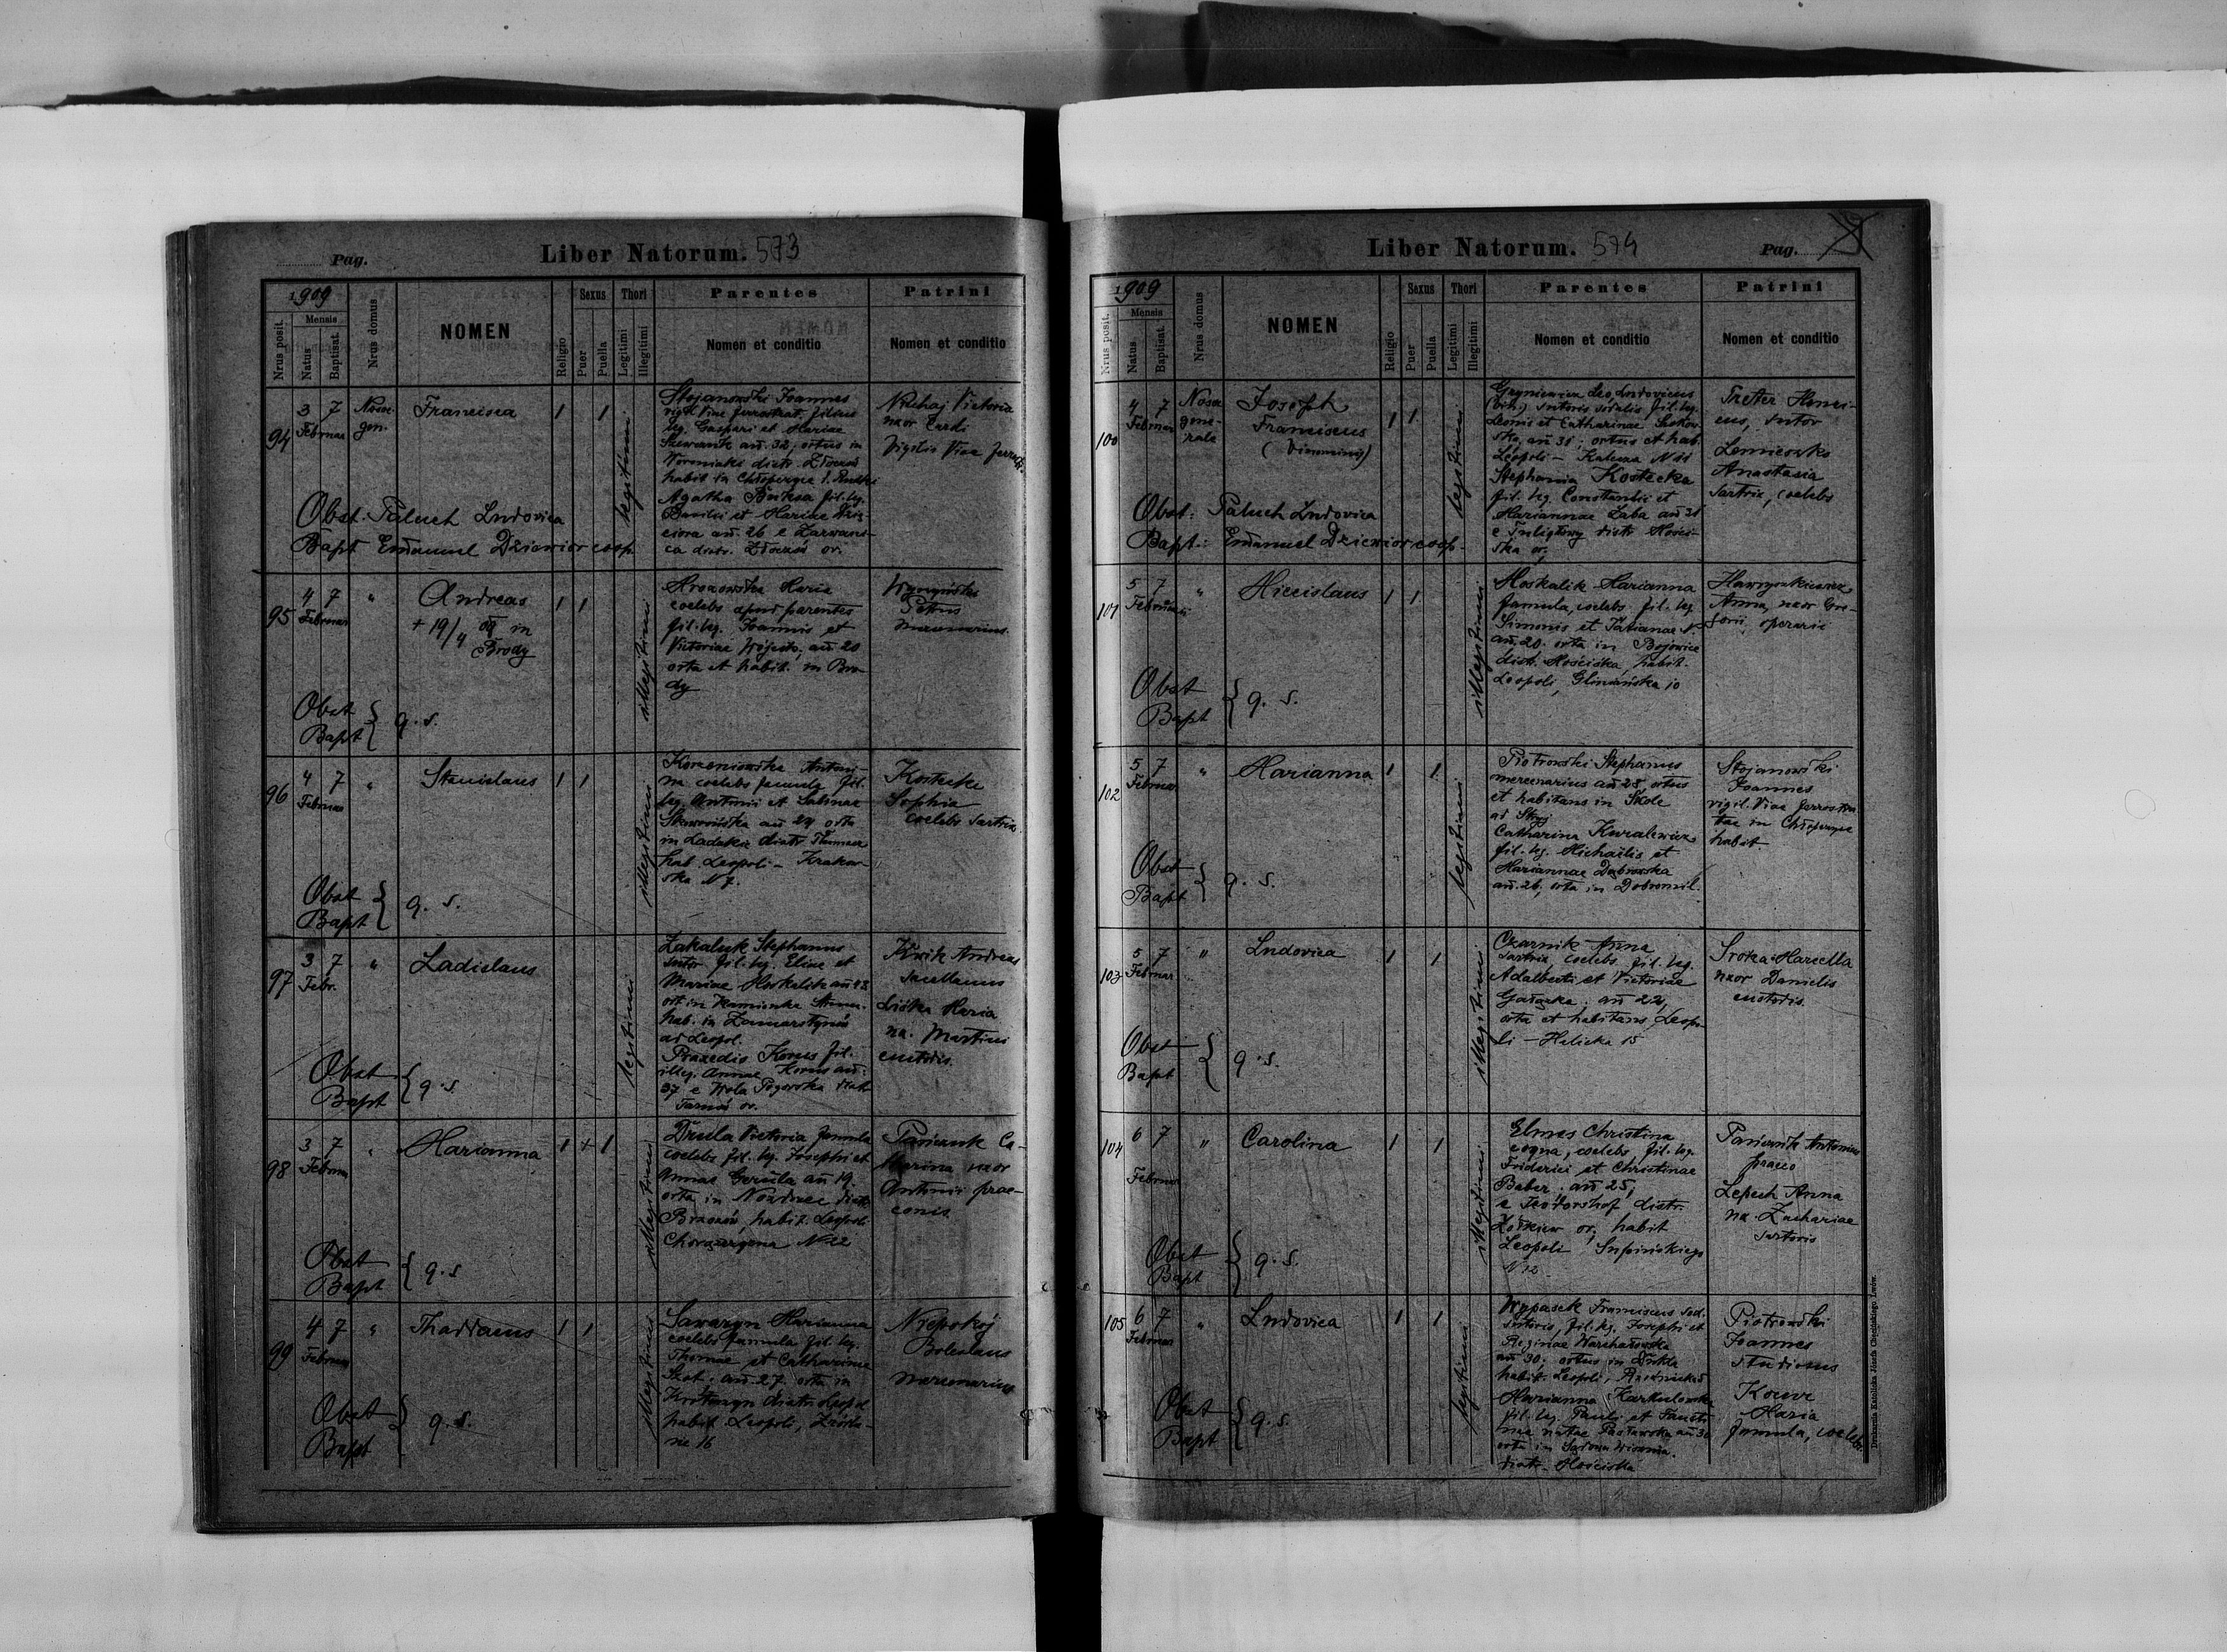 Pag.
Liber Natorum. 573
1909
Nrus posit.
Mensis
Natus
Baptisat.
Nrus domus
NOMEN
Religio
Sexus
Puer
Puella
Thori
Legitimi
Illegitimi
Parentes
Nomen et conditio
Patrini
Nomen et conditio
94
3 7
Februar
Nosoc.
gen.
Francisca
1 1
legitimi
Stojanowski Joannes
vigil Viae ferrostrat. filius
leg. Gaspari et Mariae
an. 32, ortus in
distr. Złoczów
habit in
Agatha fil. leg.
Basilii et Mariae
an. 26 e
distr. Złoczów or.
Victoria
uxor Caroli
Vigilis Viae ferrostr.
Obst: Paluch Ludovica
Bapt Emanuel Dziewior coop.
95
4 7
Februar
"
Andreas
+ 19/4 09 in
Brody
1 1
illegitimi
Maria
coelebs apud parentes
fil. leg. Joannis et
Victoriae an 20
orta et habit. in Bro-
dy
Petrus
mercenarius.
Obst
Bapt } q. s.
96
4 7
Februar
"
Stanislaus
1 1
illegitimi
Korzeniowska Antoni-
na coelebs famula fil.
leg. Antonii et Sabinae
an 24 orta
in Ladzkie distr Tłumacz
hab Leopoli - Krakow-
ska N 7.
Kostecka
Sophia
coelebs sartrix
Obst
Bapt } q. s.
97
3 7
Febr.
"
Ladislaus
legitimi
Zakaluk Stephanus
sutor fil. leg. Eliae et
Mariae Moskalik an 43
ort in Kamionka Strum.
hab. in Zamarstynów
ad Leopol.
Praxedis Korus fil.
illeg. Annae Korus an.
37 e Wola distr
Tarnów or.
Andreas
sacellanus
Maria
ux. Martini
custodis.
Obst
Bapt } q. s.
98
3 7
Februar
"
Marianna
1 + 1
illegitimi
Drula Victoria famula
coelebs fil. leg. Josephi et
Annae an 19.
orta in Nozdrzec distr
Brzozów, habit. Leopoli
Chorążczyzna N 22
Pańczuk Ca-
tharina uxor
Antonii prae-
conis
Obst
Bapt } q. s
99
4 7
Februar
"
Thaddaeus
1 1
illegitimi
Sawaryn Marianna
coelebs famula fil. leg.
Thomae et Catharinae
an 27 orta in
distr Leopol
habit Leopoli,
16
Niepokój
Boleslaus
mercenarius
Obst
Bapt } q. s.
Liber Natorum. 574
Pag.
1909
Nrus posit.
Mensis
Natus
Baptisat.
Nrus domus
NOMEN
Religio
Sexus
Puer
Puella
Thori
Legitimi
Illegitimi
Parentes
Nomen et conditio
Patrini
Nomen et conditio
100
4 7
Februar
Nosoc
gene-
rale
Joseph
Franciscus
1 1
legitimi
Leo Ludovicus
sutoris sodalis fil. leg.
Leonis et Catharinae
an 31; ortus et hab.
Leopoli - N 11
Stephania Kostecka
fil. leg. Constantii et
Mariannae Laba an 31
e Tuligłowy distr Mości-
ska or.
Treter Henri-
cus, sutor
Anastasia
sartrix, coelebs
Obst: Paluch Ludovica
Bapt.: Emanuel Dziewior coop.
101
5 7
Februar
"
Miecislaus
1 1
illegitimi
Moskalik Marianna
famula, coelebs fil. leg
Simonis et Tatianae N.
an. 20. orta in Bojowice
distr. Mościska, habit.
Leopoli, Gliniańska 10
Hawryszkiewicz
Anna, uxor Gre-
gorii, operarii
Obst
Bapt } q. s.
102
5 7
Februar
"
Marianna
1 1
legitimi
Piotrowski Stephanus
mercenarius an 28, ortus
et habitans in Skole
ad Stryj
Catharina
fil. leg. Michaelis et
Mariannae Dąbrowska
an. 26, orta in Dobromil.
Stojanowski
Joannes
vigil. Viae ferrostra
tae in
habit.
Obst
Bapt } q. s.
103
5 7
Februar
"
Ludovica
1 1
illegitimi
Czarnik Anna
sartrix, coelebs fil. leg.
Adalberti et Victoriae
an 22,
orta et habitans Leopo-
li - Halicka 15
Sroka Marcella
uxor Danielis
custodis.
Obst
Bapt } q. s.
104
6 7
Februar
"
Carolina
1 1
illegitimi
Elmes Christina
coqua, coelebs fil. leg.
Friderici et Christinae
Beber. an 25,
e Teodorshof distr.
Żółkiew or, habit
Leopoli Supińskiego
N 12
Antonius
praeco
Lepech Anna
ux. Zachariae
sartoris
Obst
Bapt } q. s.
105
6 7
Februar
"
Ludovica
1 1
legitimi
Wypasek Franciscus sod.
sutoris, fil. leg. Josephi et
Reginae
an 30. ortus in Dukla
habit. Leopoli,
Marianna
fil. leg. Pauli et Fausti-
nae natae an 30
orta in Sądowa Wisznia.
distr. Mościska
Piotrowski
Joannes
studiosus
Maria
famula, coelebs.
Obst
Bapt } q. s.
Drukarnia Katolicka Józefa Chęcińskiego Lwów.